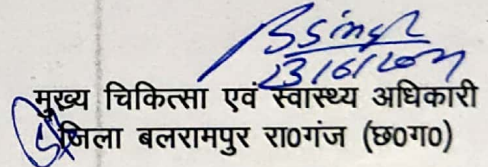 BSingh
मुख्य चिकित्सा एवं स्वास्थ्य अधिकारी
जिला बलरामपुर रा0गंज (छ0ग0)